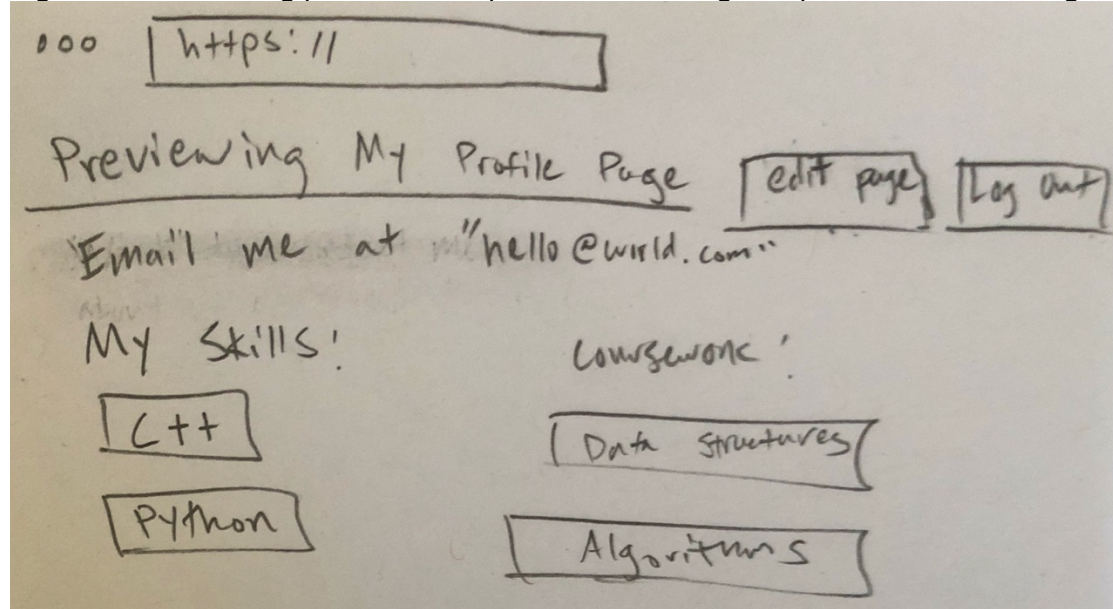 https://
Previewing My Profile Page edit page Log out
Email me at "hello@world.com"
My Skills: Coursework:
C++ Data Structures
Python Algorithms